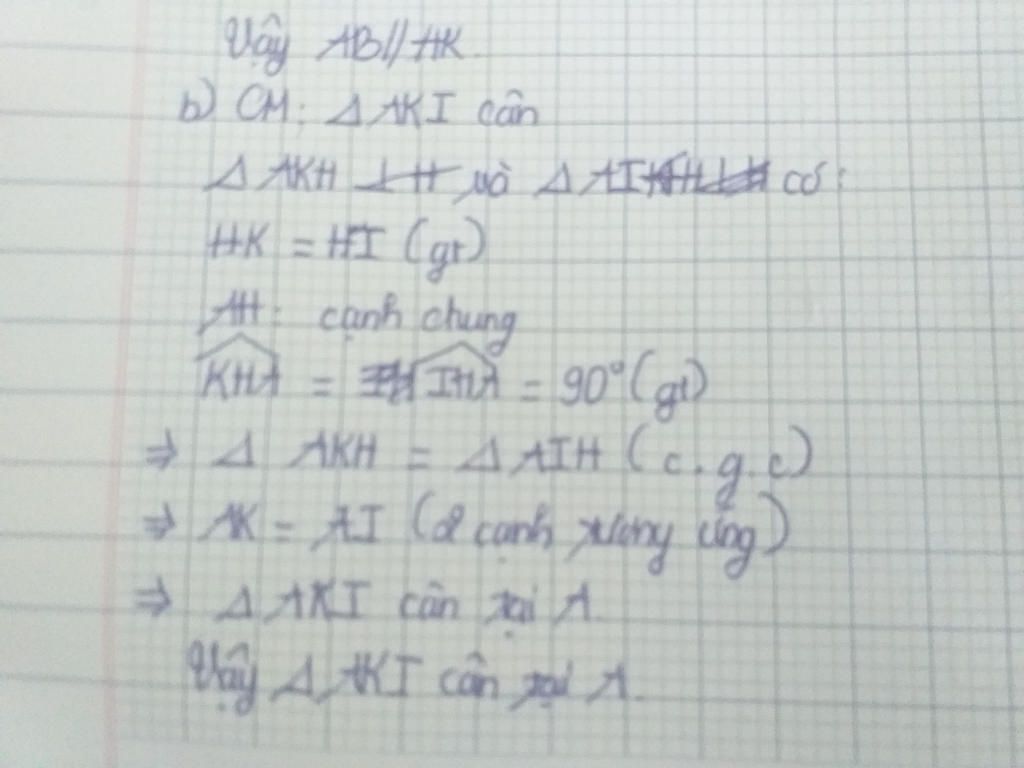 Vậy AB // HK.
b) CM: Δ AKI cân
Δ AKH và Δ AIH có:
HK = HI (gt)
AH: cạnh chung
KHA = IHA = 90° (gt)
⇒ Δ AKH = Δ AIH (c.g.c)
⇒ AK = AI (2 cạnh tương ứng)
⇒ Δ AKI cân tại A.
Vậy Δ AKI cân tại A.